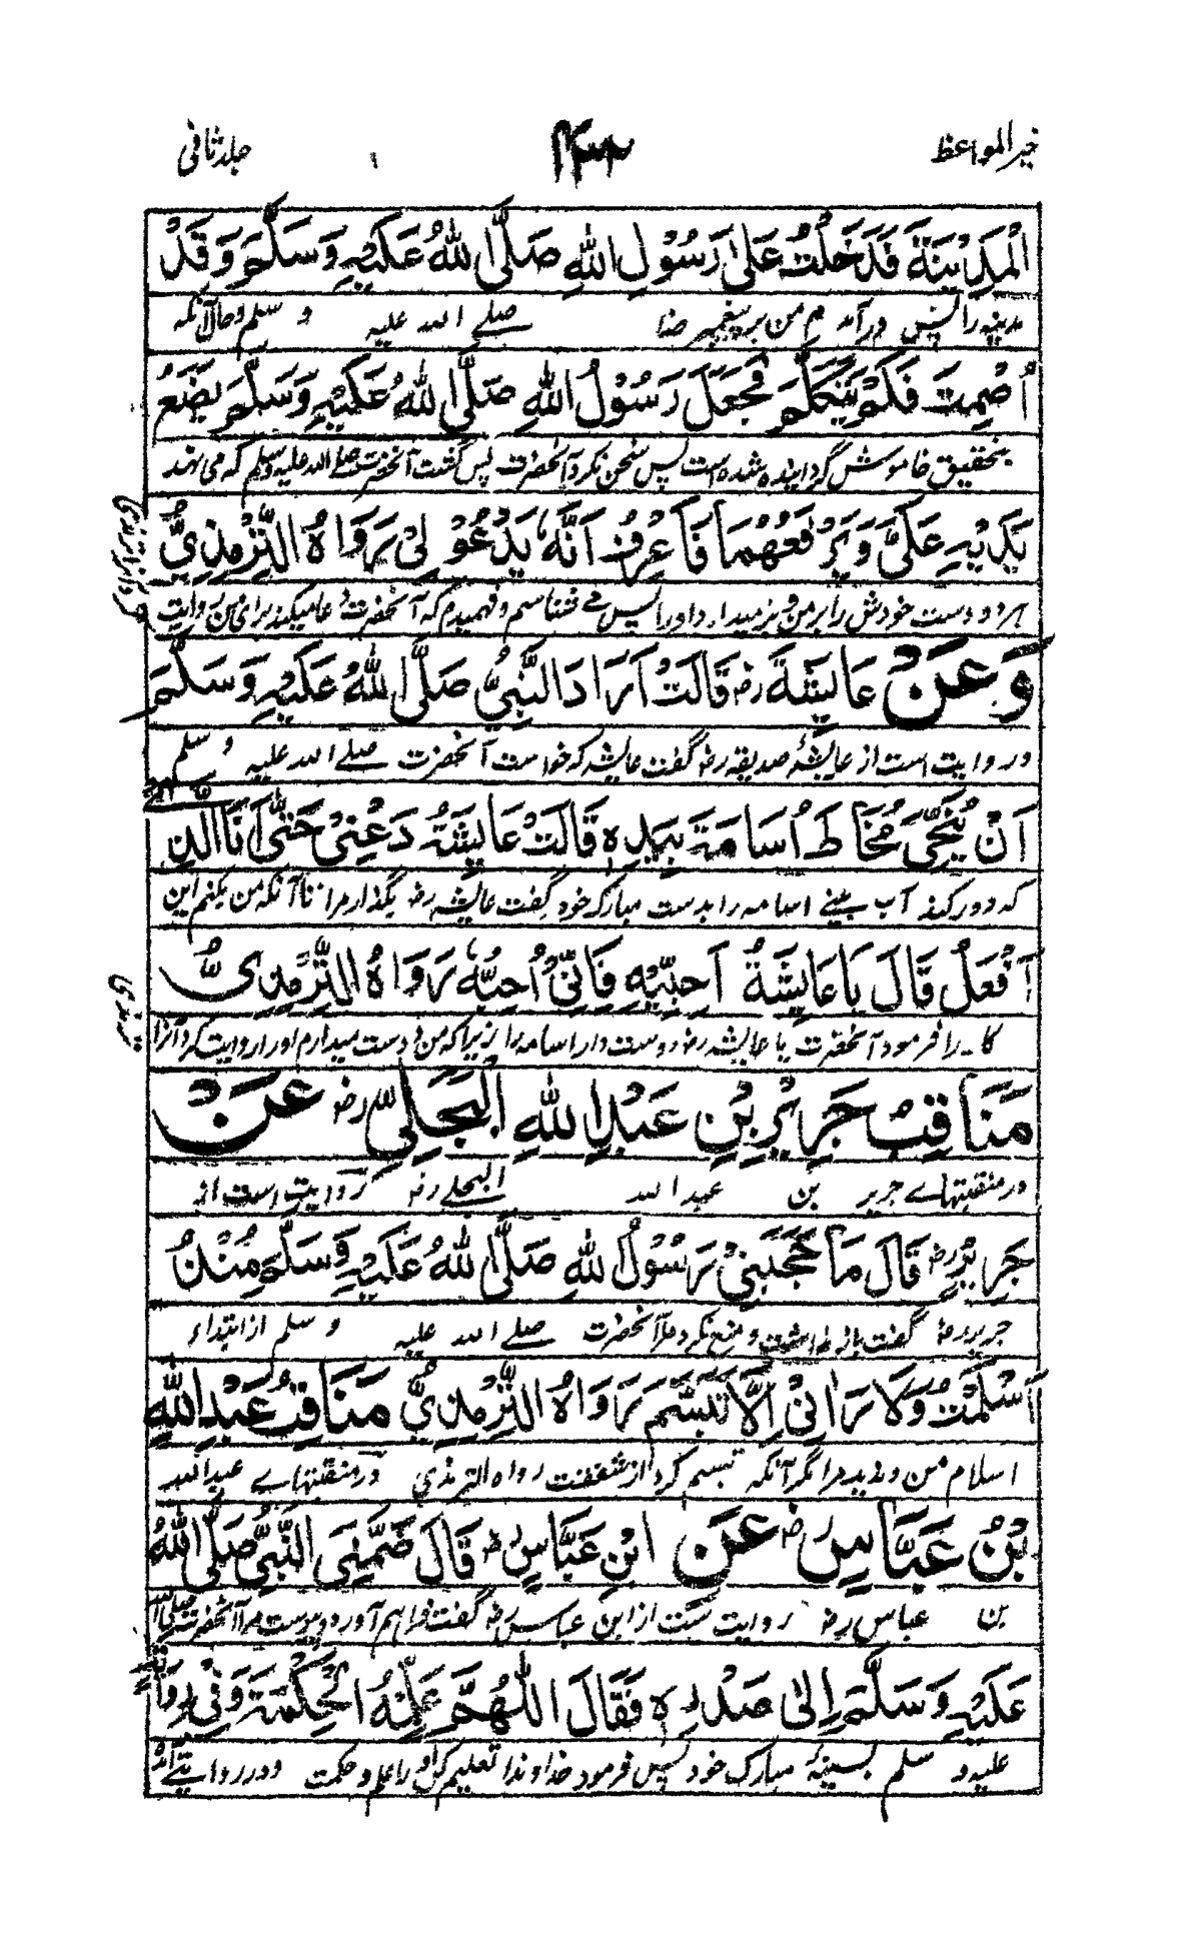 خیر المواعظ ۴۳۲ جلد ثانی
الْمَدِيْنَةَ فَدَخَلْتُ عَلٰى رَسُوْلِ اللهِ صَلَّى اللهُ عَلَيْهِ وَسَلَّمَ وَقَدْ
مدینہ را پس درآمدم من بر پیغمبر خدا صلے اللہ علیہ و سلم و حال آنکہ
اُصْمِتَ فَلَمْ يَتَكَلَّمْ فَجَعَلَ رَسُوْلُ اللهِ صَلَّى اللهُ عَلَيْهِ وَسَلَّمَ يَضَعُ
بتحقیق خاموش گردانیده شده است پس سخن نکرد آنحضرت پس گشت آنحضرت صلے اللہ علیہ وسلم کہ می نہند
يَدَيْهِ عَلَيَّ وَيَرْفَعُهُمَا فَاَعْرِفُ اَنَّهٗ يَدْعُوْ لِيْ رَوَاهُ التِّرْمِذِيُّ
ہر دو دست خودش را بر من و بر میدارد اورا پس مے شناسم و فہمیدم کہ آنحضرت دعا میکند برای من روایت
وَعَنْ عَايِشَةَ رض قَالَتْ اَرَادَ النَّبِيُّ صَلَّى اللهُ عَلَيْهِ وَسَلَّمَ
و روایت است از عایشہ صدیقہ رض گفت عایشہ کہ خواست آنحضرت صلے اللہ علیہ و سلم
اَنْ يُنَحِّيَ مُخَاطَ اُسَامَةَ بِيَدِهٖ قَالَتْ عَايِشَةُ دَعْنِيْ حَتّٰى اَنَا الَّذِي
کہ دور کند آب بینے اسامہ را بدست مبارک خود گفت عایشہ رض بگذار مرا تا آنکہ من بکنم این
اَفْعَلُ قَالَ يَا عَايِشَةُ اَحِبِّيْهِ فَاِنِّيْ اُحِبُّهٗ رَوَاهُ التِّرْمِذِيُّ
کار را فرمود آنحضرت یا عایشہ رض دوست دار اسامہ را زیرا کہ من دوست میدارم اورا روایت کرد آنرا
مَنَاقِبُ جَرِيْرِ بْنِ عَبْدِ اللهِ الْبَجَلِيِّ رض عَنْ
در منقبتہاے جریر بن عبد اللہ البجلے رض روایت است از
جَرِيْرٍ رض قَالَ مَا حَجَبَنِيْ رَسُوْلُ اللهِ صَلَّى اللهُ عَلَيْهِ وَسَلَّمَ مُنْذُ
جریر رض گفت باز نداشت و منع نکرد مرا آنحضرت صلے اللہ علیہ و سلم از ابتداء
اَسْلَمْتُ وَلَا رَاٰنِيْ اِلَّا تَبَسَّمَ رَوَاهُ التِّرْمِذِيُّ مَنَاقِبُ عَبْدِ اللهِ
اسلام من و ندید مرا مگر آنکہ تبسم کرد از شفقت رواہ الترمذی در منقبتہاے عبد اللہ
بْنُ عَبَّاسٍ رض عَنِ ابْنِ عَبَّاسٍ رض قَالَ ضَمَّنِيَ النَّبِيُّ صَلَّى اللهُ
بن عباس رض روایت است از ابن عباس رض گفت فراہم آورد و پیوست مرا آنحضرت صلی اللہ
عَلَيْهِ وَسَلَّمَ اِلٰى صَدْرِهٖ فَقَالَ اللّٰهُمَّ عَلِّمْهُ الْحِكْمَةَ وَفِيْ رِوَايَةٍ
علیہ و سلم بسینۂ مبارک خود پس فرمود خداوندا تعلیم کن او را علم و حکمت و در روایتے آمد